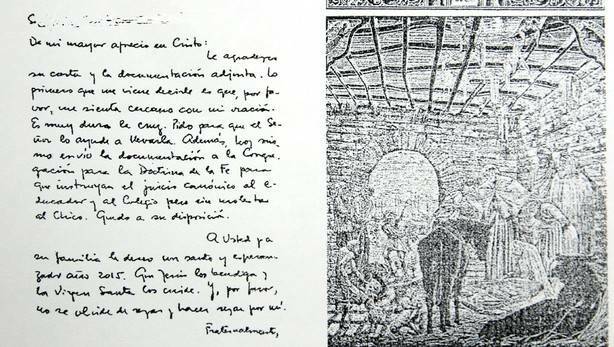 S
De mi mayor aprecio en Cristo:
Le agradezco
su carta y la documentación adjunta. Lo
primero que me viene decirle es que, por fa-
vor, me sienta cercano con mi oración.
Es muy dura la cruz. Pido para que el Se-
ñor lo ayude a llevarla. Además, hoy mis-
mo envío la documentación a la Congre-
gación para la Doctrina de la Fe para
que instruyan el juicio canónico al e-
ducador y al Colegio pero sin molestar
al Chico. Quedo a su disposición.
A Usted y a
su familia le deseo un santo y esperan-
zador año 2015. Que Jesús los bendiga y
la Virgen Santa los cuide. Y, por favor,
no se olvide de rezar y hacer rezar por mí.
Fraternalmente,